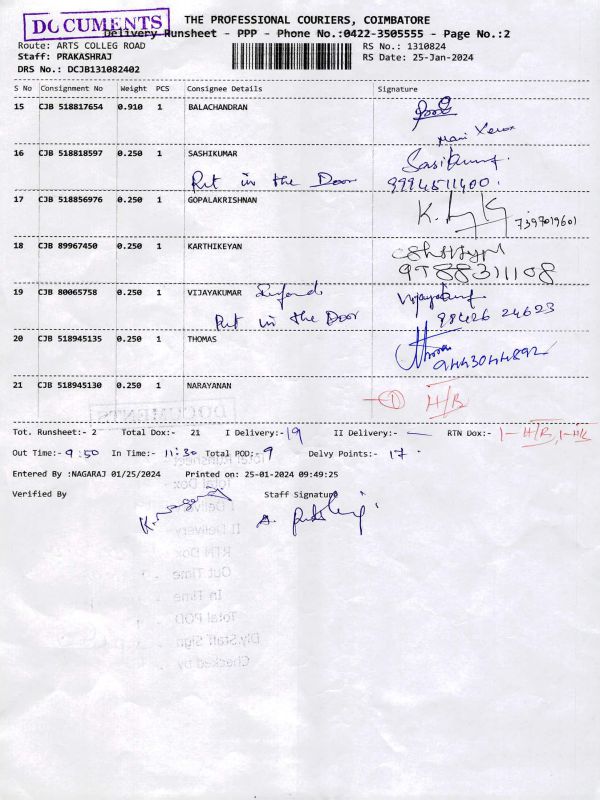 DOCUMENTS
THE PROFESSIONAL COURIERS, COIMBATORE
Delivery Runsheet - PPP - Phone No.:0422-3505555 - Page No.:2
Route: ARTS COLLEG ROAD
RS No.: 1310824
Staff: PRAKASHRAJ
RS Date: 25-Jan-2024
DRS No.: DCJB131082402
S No Consignment No Weight PCS Consignee Details Signature
15 CJB 518817654 0.910 1 BALACHANDRAN
Mani Xerox
16 CJB 518818597 0.250 1 SASHIKUMAR Sasikumar.
Put in the Door 9994511400.
17 CJB 518856976 0.250 1 GOPALAKRISHNAN
7397019601
18 CJB 89967450 0.250 1 KARTHIKEYAN
9788311108
19 CJB 80065758 0.250 1 VIJAYAKUMAR Vijayakumar
Put in the Door 98426 24623
20 CJB 518945135 0.250 1 THOMAS Thomas
9443044892
21 CJB 518945130 0.250 1 NARAYANAN ① H/R
DOCUMENTS
Tot. Runsheet:- 2 Total Dox:- 21 I Delivery:- 19 II Delivery:- — RTN Dox:- 1-H/R, 1-
Out Time:- 9:50 In Time:- 11:30 Total POD:- 9 Delvy Points:- 17.
Entered By :NAGARAJ 01/25/2024 Printed on: 25-01-2024 09:49:25
Verified By Staff Signature
Total Dox
I Delivery
II Delivery
RTN Dox
Out Time
In Time
Total POD
Dly.Staff Sign
Checked by